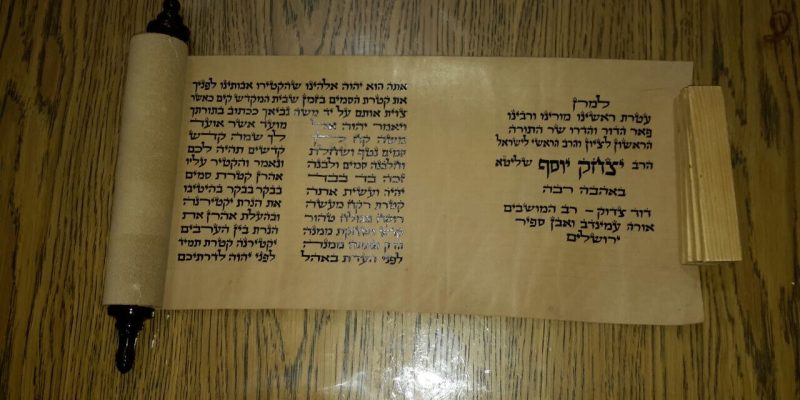 למרן
עטרת ראשינו מורינו ורבינו
פאר הדור והדרו שר התורה
הראשון לציון והרב הראשי לישראל
הרב יצחק יוסף שליטא
באהבה רבה
דוד צדוק – רב המושבים
אורה עמינדב ואבן ספיר
ירושלים
אתה הוא יהוה אלהינו שהקטירו אבותינו לפניך
את קטרת הסמים בזמן שבית המקדש קים כאשר
צוית אותם על יד משה נביאך ככתוב בתורתך
ויאמר יהוה אל
משה קח לך
סמים נטף ושחלת
וחלבנה סמים ולבנה
זכה בד בבד
יהיה ועשית אתה
קטרת רקח מעשה
רוקח ממלח טהור
קדש ושחקת ממנה
הדק ונתתה ממנה
לפני העדת באהל
מועד אשר אועד
לך שמה קדש
קדשים תהיה לכם
ונאמר והקטיר עליו
אהרן קטרת סמים
בבקר בבקר בהיטיבו
את הנרת יקטירנה
ובהעלת אהרן את
הנרת בין הערבים
יקטירנה קטרת תמיד
לפני יהוה לדרתיכם